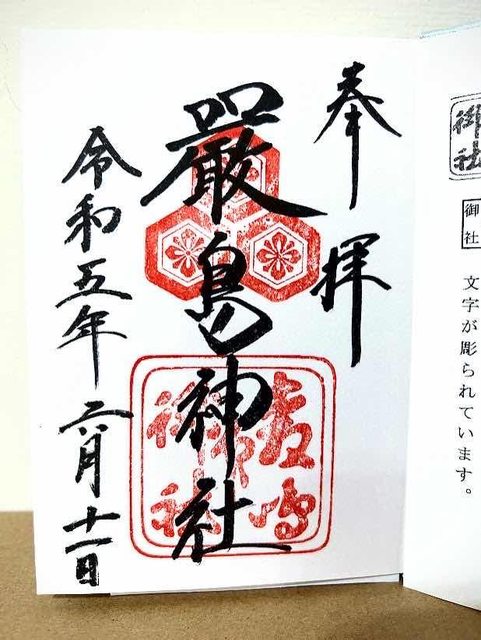 御社
御社
文字が彫られています。
奉拝
嚴島神社
令和五年六月十一日